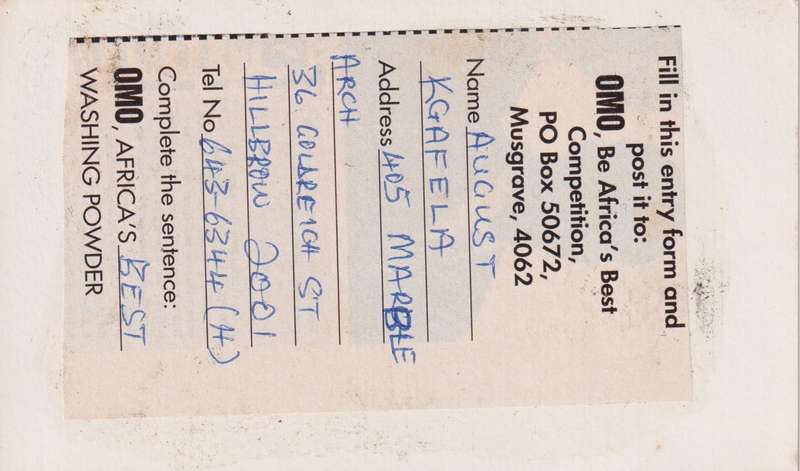 Fill in this entry form and
post it to:
OMO, Be Africa's Best
Competition,
PO Box 50672,
Musgrave, 4062
Name AUGUST
KGAFELA
Address 405 MARBLE
ARCH
36 GOLDREICH ST
HILLBROW 2001
Tel No 643-6344 (H)
Complete the sentence:
OMO, AFRICA'S BEST
WASHING POWDER